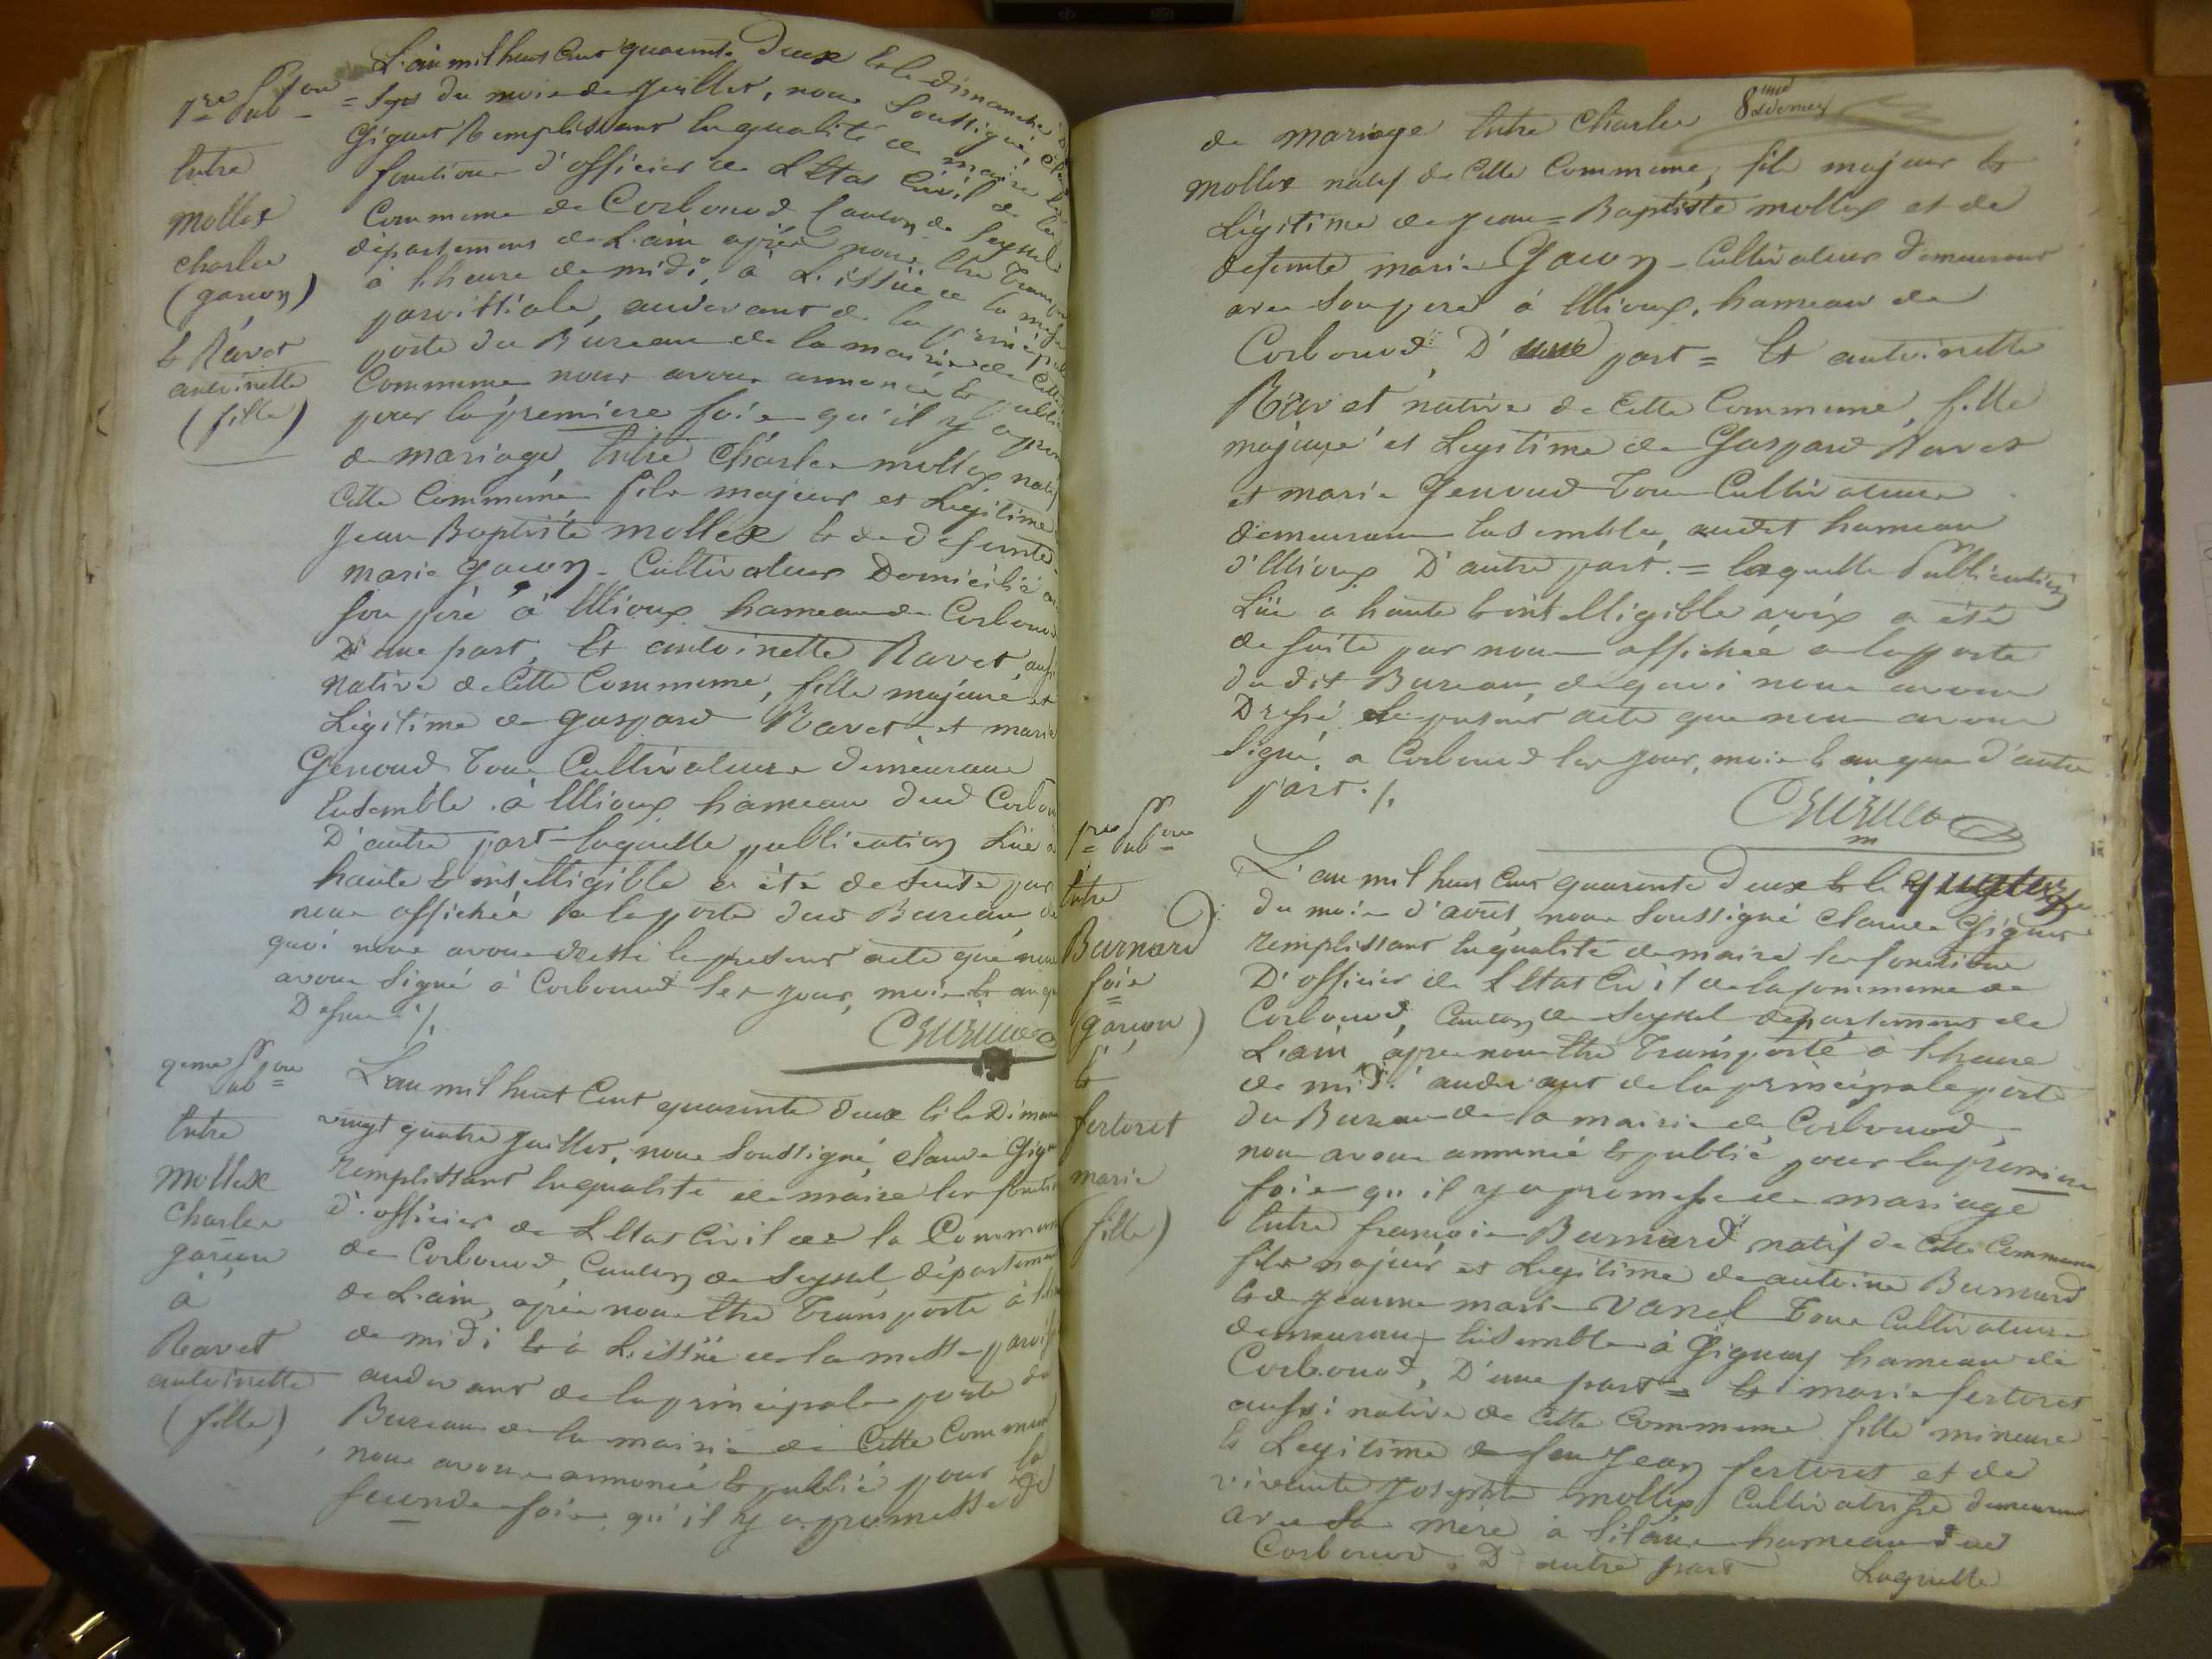 1re Pub^on
Entre
Mollex
Charles
(garçon)
& Ravet
antoinette
(fille)
L'an mil huit Cent quarante Deux & le dimanche
Sept du mois de Juillet, nous Soussigné,
Giguet Remplissant la qualité de maire les
fonctions d'officier de L'Etat Civil de la
Commune de Corbonod Canton de Seyssel
département de L'ain après nous être
à l'heure de midi, à L'issüe de la messe
paroissiale, audevant de la principale
porte du Bureau de la mairie de Cette
Commune nous avons annoncé & publié
pour la première fois qu'il y a
de mariage, Entre Charles mollex natif
Cette Commune fils majeur et Légitime
Jean Baptiste mollex & de defunte
Marie Gacon - Cultivateur Domicilié
son père à Ellioux hameau de Corbonod
D'une part, Et antoinette Ravet aussi
Native de Cette Commune, fille majeure et
Légitime de Gaspard Ravet et marie
Genoud Tous Cultivateurs demeurans
Ensemble à Ellioux hameau dud Corbonod
D'autre part - laquelle publication Lüe à
haute & intelligible a été de suite par
nous affichée a la porte dud Bureau de
quoi nous avons dressé le présent acte que nous
avons Signé à Corbonod les jour, mois & an que
Dessus ./.
2eme Pub^on
Entre
Mollex
Charles
garçon
à
Ravet
antoinette
(fille)
L'an mil huit Cent quarante deux & le Dimanche
vingt quatre Juillet, nous Soussigné, Claude Giguet
Remplissant la qualité de maire les fonctions
D'officier de L'Etat Civil de la Commune
de Corbonod, Canton de Seyssel, département
de L'ain, après nous être Transporté à l'heure
de midi & à L'issüe de la messe paroissiale
audevant de la principale porte du
Bureau de la mairie de Cette Commune
nous avons annoncé & publié pour la
seconde fois, qu'il y a promesse de
8me
de mariage Entre Charles
Mollex natif de Cette Commune, fils majeur &
Légitime de Jean = Baptiste mollex et de
defunte marie Gacon - Cultivateur demeurant
avec Son père à Ellioux, hameau de
Corbonod, D'une part = Et antoinette
Ravet native de Cette Commune, fille
majeure et Légitime de Gaspard Ravet
et marie Genoud Tous Cultivateurs
demeurans Ensemble, audit hameau
d'Ellioux D'autre part. = laquelle Publication
Lüe a haute & intelligible voix a été
de suite par nous affichée a la porte
du dit Bureau, de quoi nous avons
Dressé le présent acte que nous avons
Signé, a Corbonod les jour, mois & an que d'autre
part ./.
1re Pub^on
Entre
Burnard
fois
(garçon)
&
fertoret
marie
(fille)
L'an mil huit Cent quarante Deux & le
du mois d'août, nous Soussigné Claude Giguet
remplissant la qualité de maire les fonctions
D'officier de L'Etat Civil de la Commune de
Corbonod, Canton de Seyssel département de
L'ain, après nous être Transporté à l'heure
de midi audevant de la principale porte
du Bureau de la mairie de Corbonod,
nous avons annoncé & publié pour la première
fois qu'il y a promesse de mariage
Entre françois Burnard natif de Cette Commune
fils majeur et Légitime de antoine Burnard
& de Jeanne marie Vanel Tous Cultivateurs
demeurans Ensemble à Gignez hameau de
Corbonod, D'une part = & marie fertoret
aussi native de Cette Commune fille mineure
& Légitime de feu Jean fertoret et de
vivante Josephte mollex Cultivatrice demeurant
avec Sa mère à Silan hameau dud
Corbonod, D'autre part
Laquelle